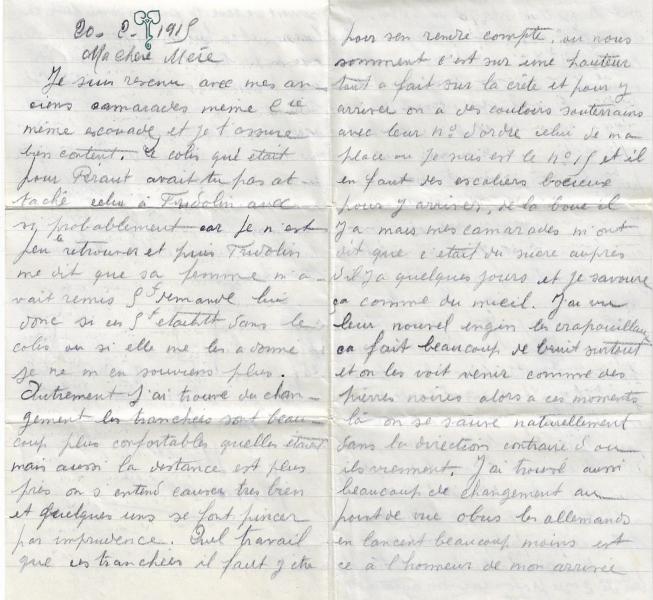 20-2-1915
Ma chère Mère
Je suis revenu avec mes an-
ciens camarades même Cie
même escouade et je t'assure
bien content. Le colis qui était
pour Peraut avait tu pas at-
taché celui à Fridolin avec
si, probablement car je n'est
peu le retrouver et puis Fridolin
me dit que sa femme m'a-
vait remis 5f demande lui
donc si ces 5f étaient dans le
colis ou si elle me les a donné
je ne m'en souviens plus.
Autrement j'ai trouvé du chan-
gement les tranchées sont beau-
coup plus confortables quelles étaient
mais aussi la distance est plus
près on s'entend causer très bien
et quelques uns se font pincer
par imprudence. Quel travail
que ces tranchées il faut y être
pour s'en rendre compte, ou nous
somment c'est sur une hauteur
tout a fait sur la crête et pour y
arriver on a des couloirs souterrains
avec leur no d'ordre celui de ma
place ou je suis est le no 15 et il
en faut des escaliers bocieux
pour y arriver, de la boue il
y a mais mes camarades m'ont
dit que c'était du sucre auprès
d'il y a quelques jours et je savoure
ça comme du miell. J'ai vu
leur nouvel engin les crapouillau
ça fait beaucoup de bruit surtout
et on les voit venir comme des
pierres noires alors a ces moments
là on se sauve naturellement
dans la direction contraire d'ou
ils viennent. J'ai trouvé aussi
beaucoup de changement au
point de vue obus les allemands
en lancent beaucoup moins est
ce à l'honneur de mon arrivée